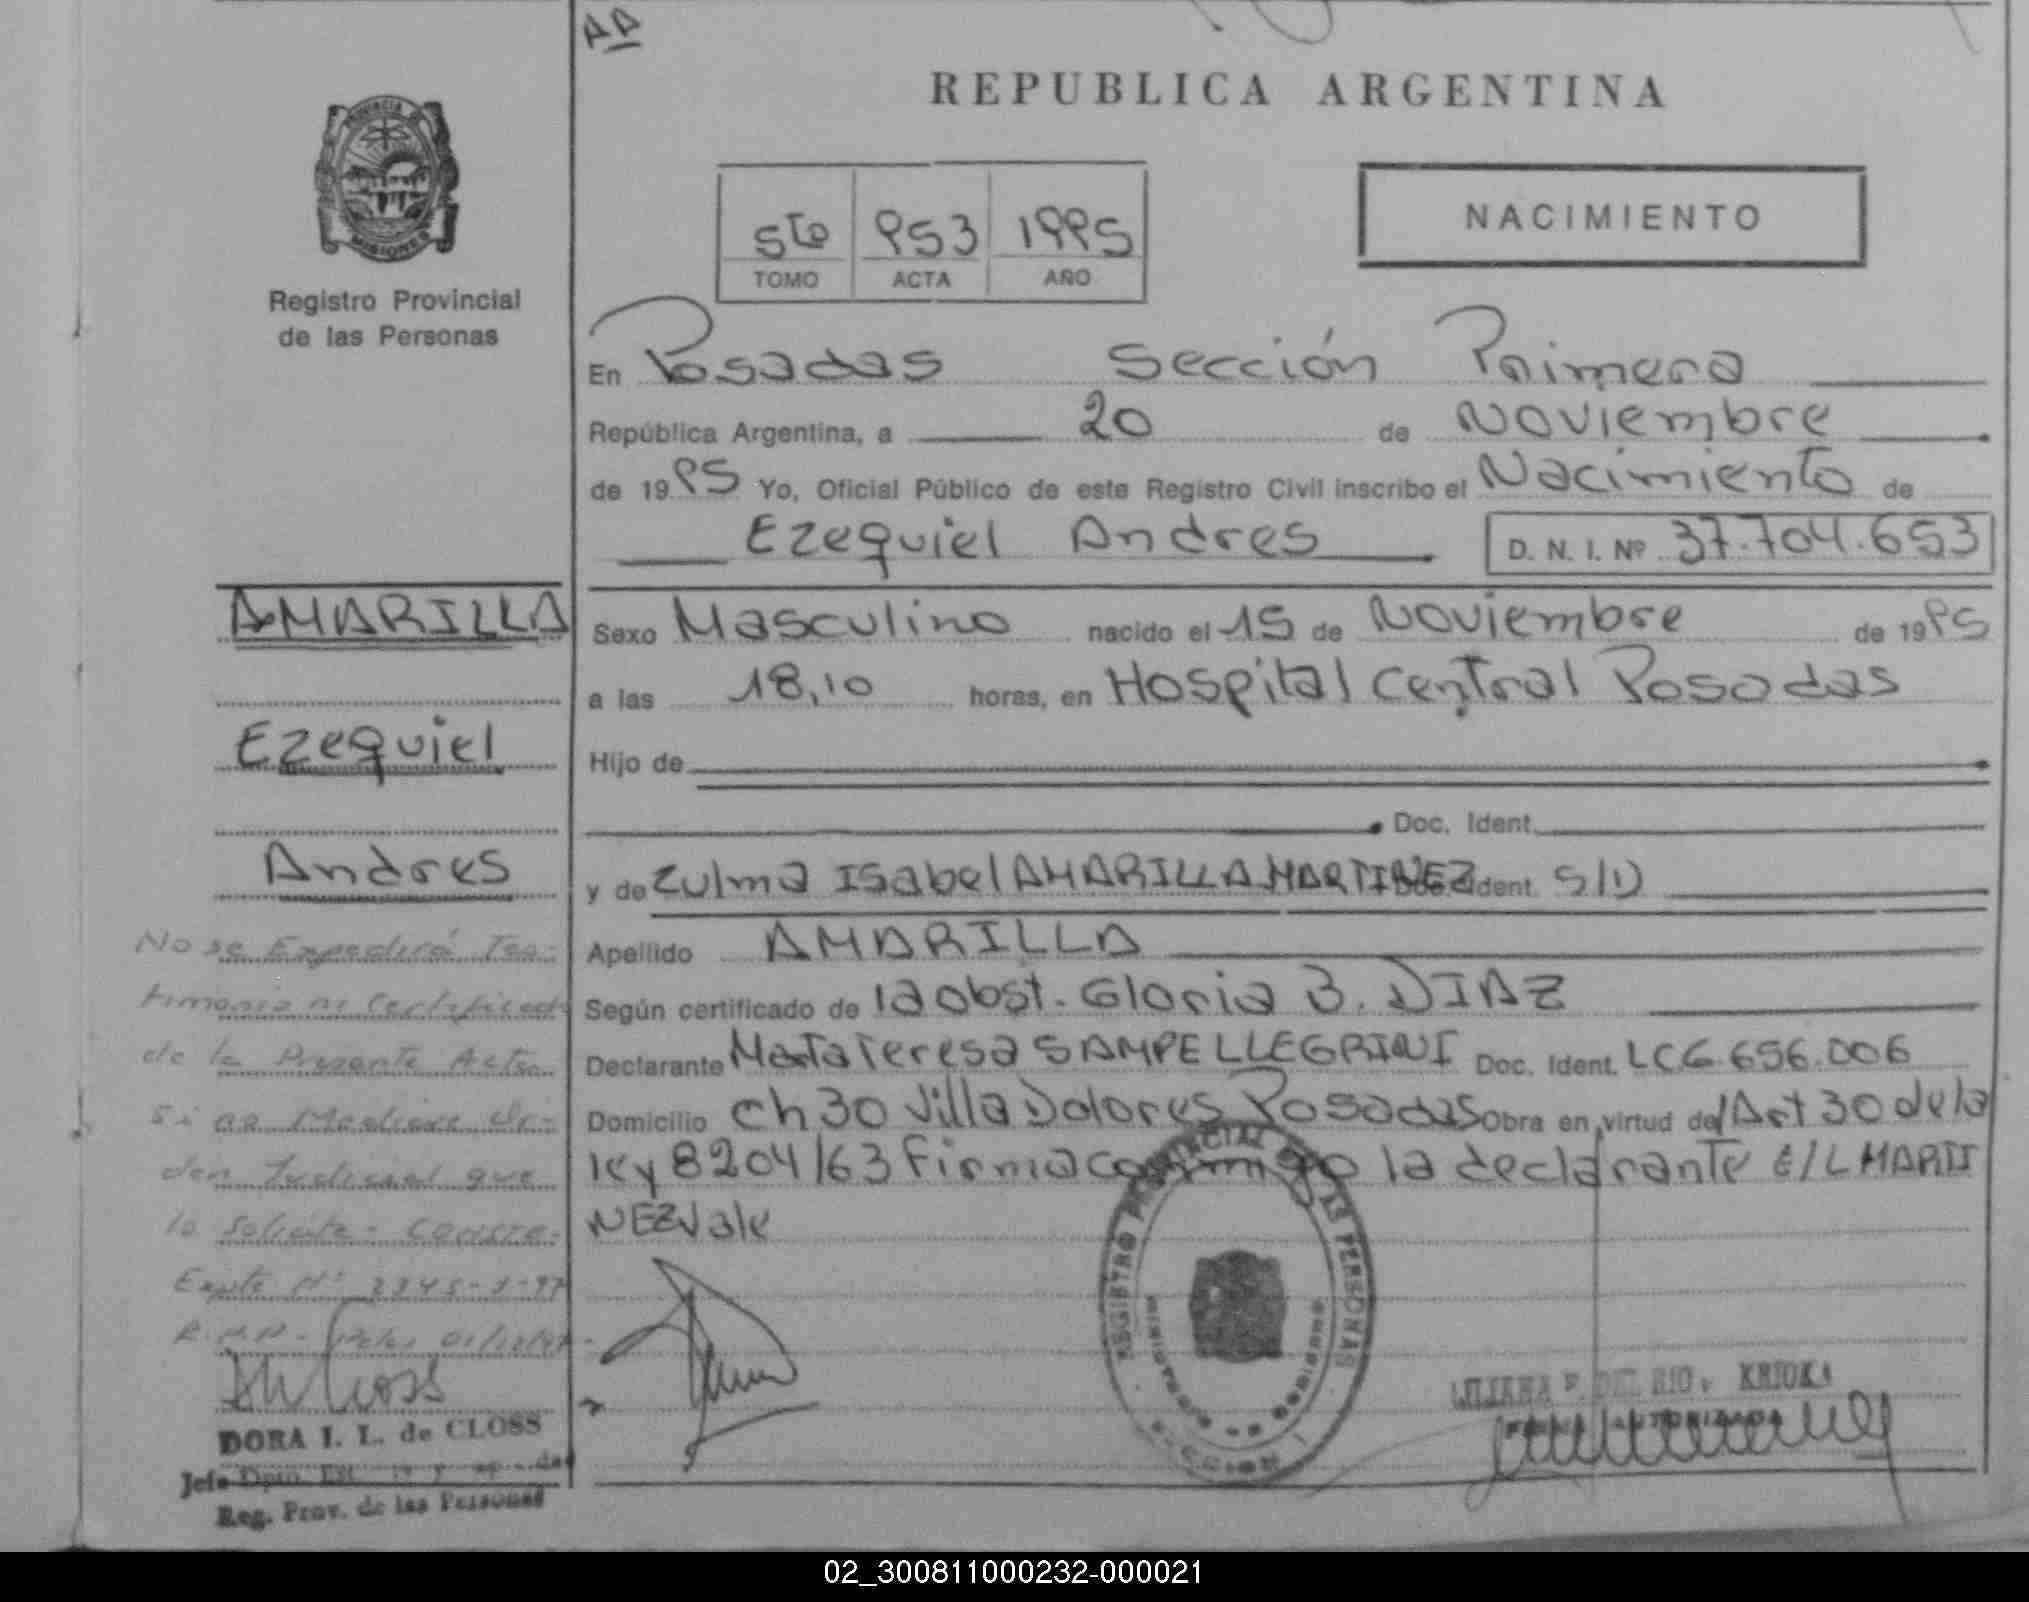 AA
REPUBLICA ARGENTINA
PROVINCIA DE
MISIONES
Registro Provincial
de las Personas
5to 953 1995
TOMO ACTA AÑO
NACIMIENTO
En Posadas Sección Primera
República Argentina, a 20 de Noviembre
de 1995 Yo, Oficial Público de este Registro Civil inscribo el Nacimiento de
Ezequiel Andres D. N. I. Nº 37.704.653
Sexo Masculino nacido el 15 de Noviembre de 1995
a las 18,10 horas, en Hospital Central Posadas
Hijo de
Doc. Ident.
y de Zulma Isabel AMARILLA MARTINEZ Doc. Ident. S/D
Apellido AMARILLA
Según certificado de la obst. Gloria B. DIAZ
Declarante Marta Teresa SAMPELLEGRINI Doc. Ident. LC 6.656.006
Domicilio Ch 30 Villa Dolores Posadas Obra en virtud del Art 30 de la
ley 8204/63 Firma conmigo la declarante E/L MARTI
NEZ Vale
AMARILLA
Ezequiel
Andres
No se Expedirá Tes-
timonio ni Certificado
de la Presente Acta
Si no Mediare Or-
den Judicial que
lo solicite - Conste-
Expte Nº 2845-
R.P.P.- Pdas 01/12/97-
DORA I. L. de CLOSS
Jefe Dpto.
Reg. Prov. de las Personas
REGISTRO PROVINCIAL DE LAS PERSONAS
MISIONES
LILIANA F. DEL RIO KRIOKA
02_300811000232-000021